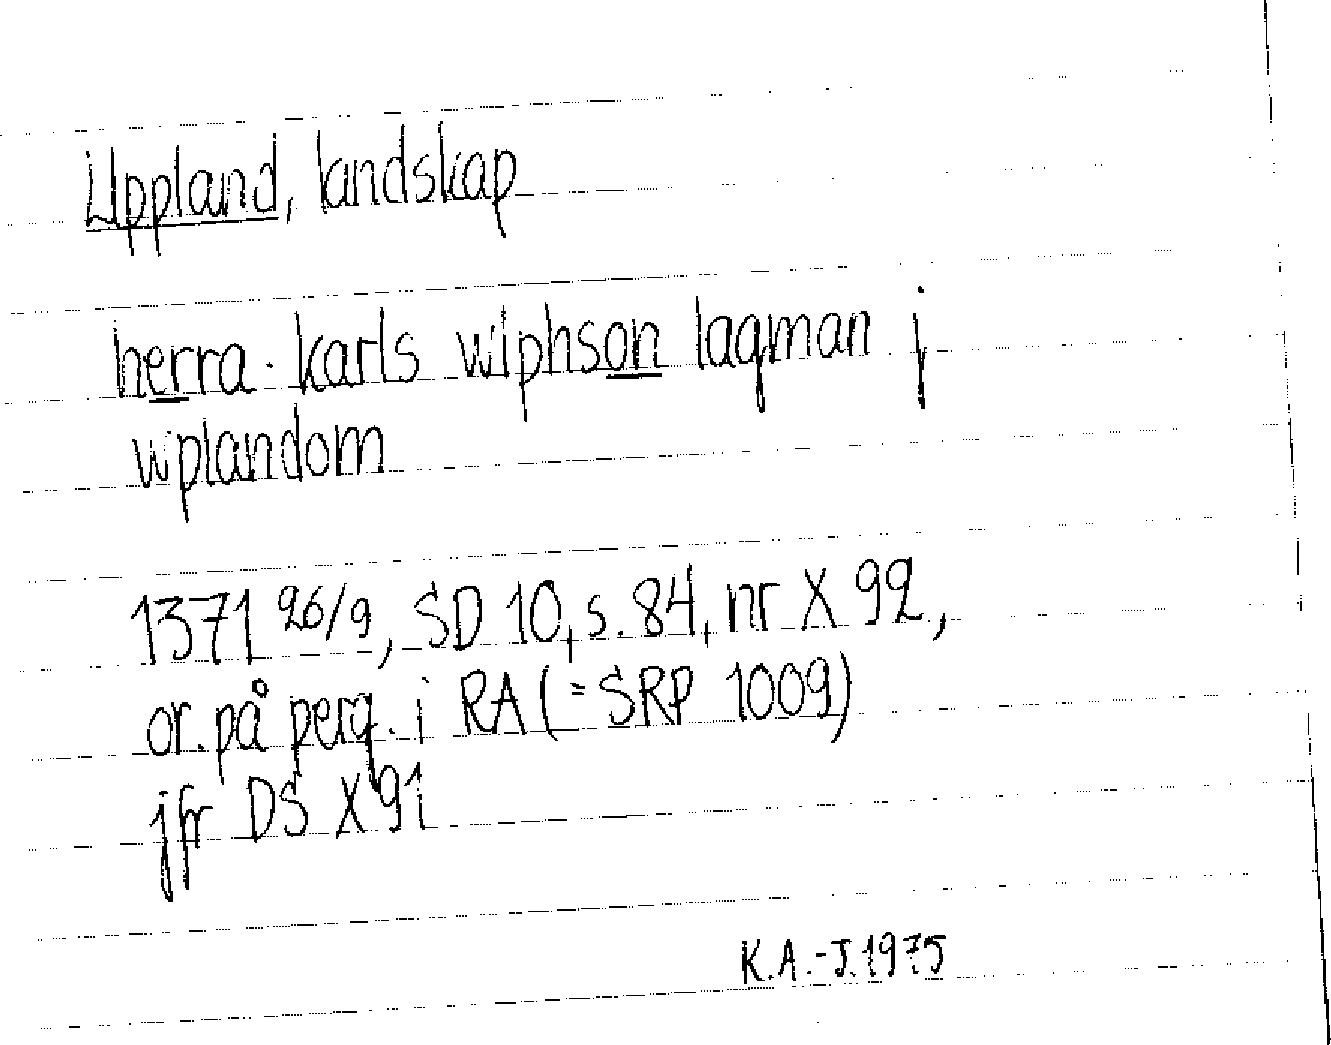 Uppland, landskap
herra · karls wlphson lagman j
wplandom
1371 26/9, SD 10, s. 84, nr X 92,
or. på perg. i RA (= SRP 1009)
jfr DS X 91
K.A.-J. 1975